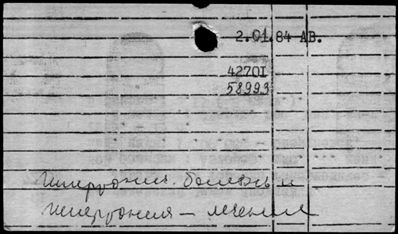 2.01.84 АВ.
42701
58999
Гипертония. болезнь и
гипертония – лечение